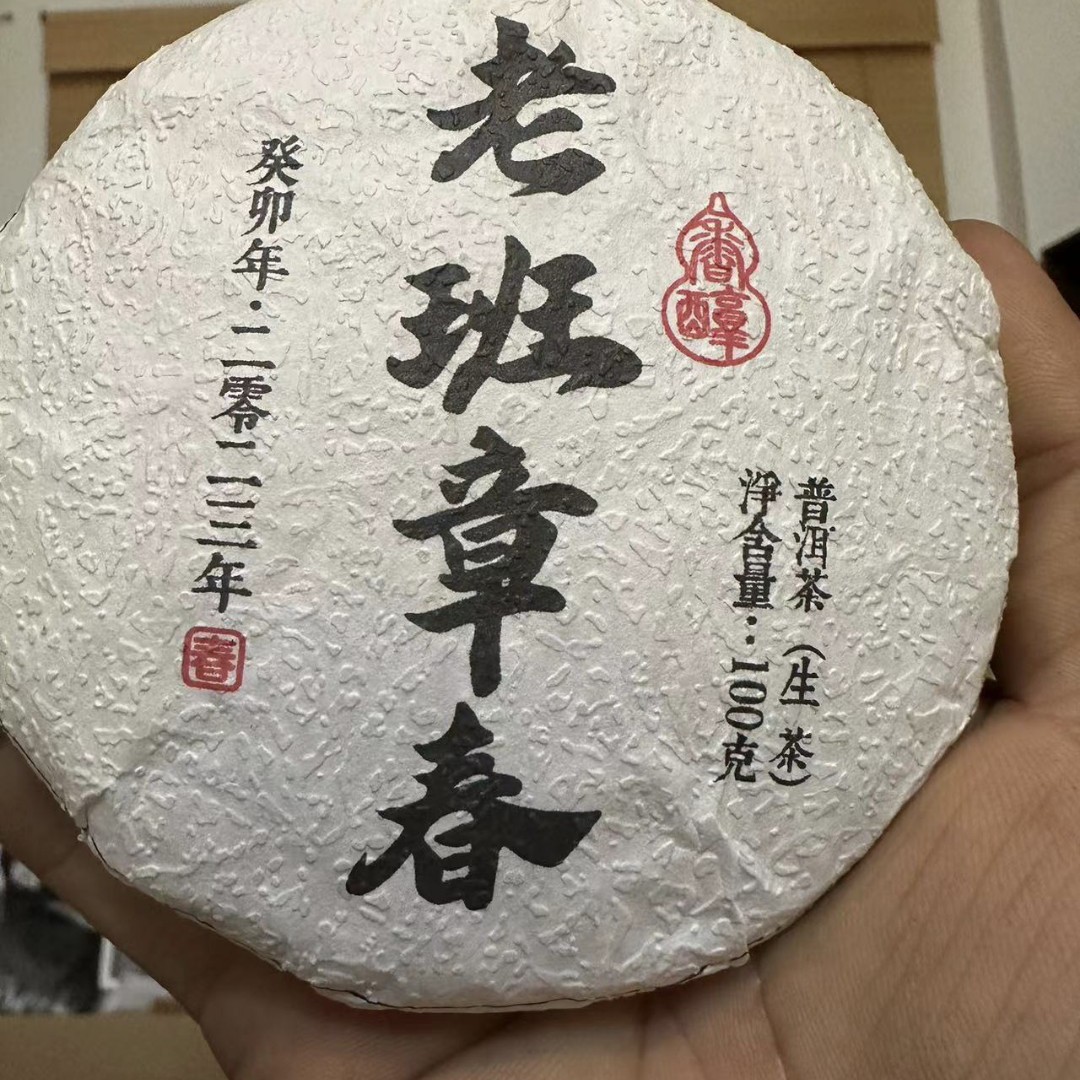 香醇
普洱茶（生茶）
净含量：100克
老班章春
癸卯年·二零二三年
春